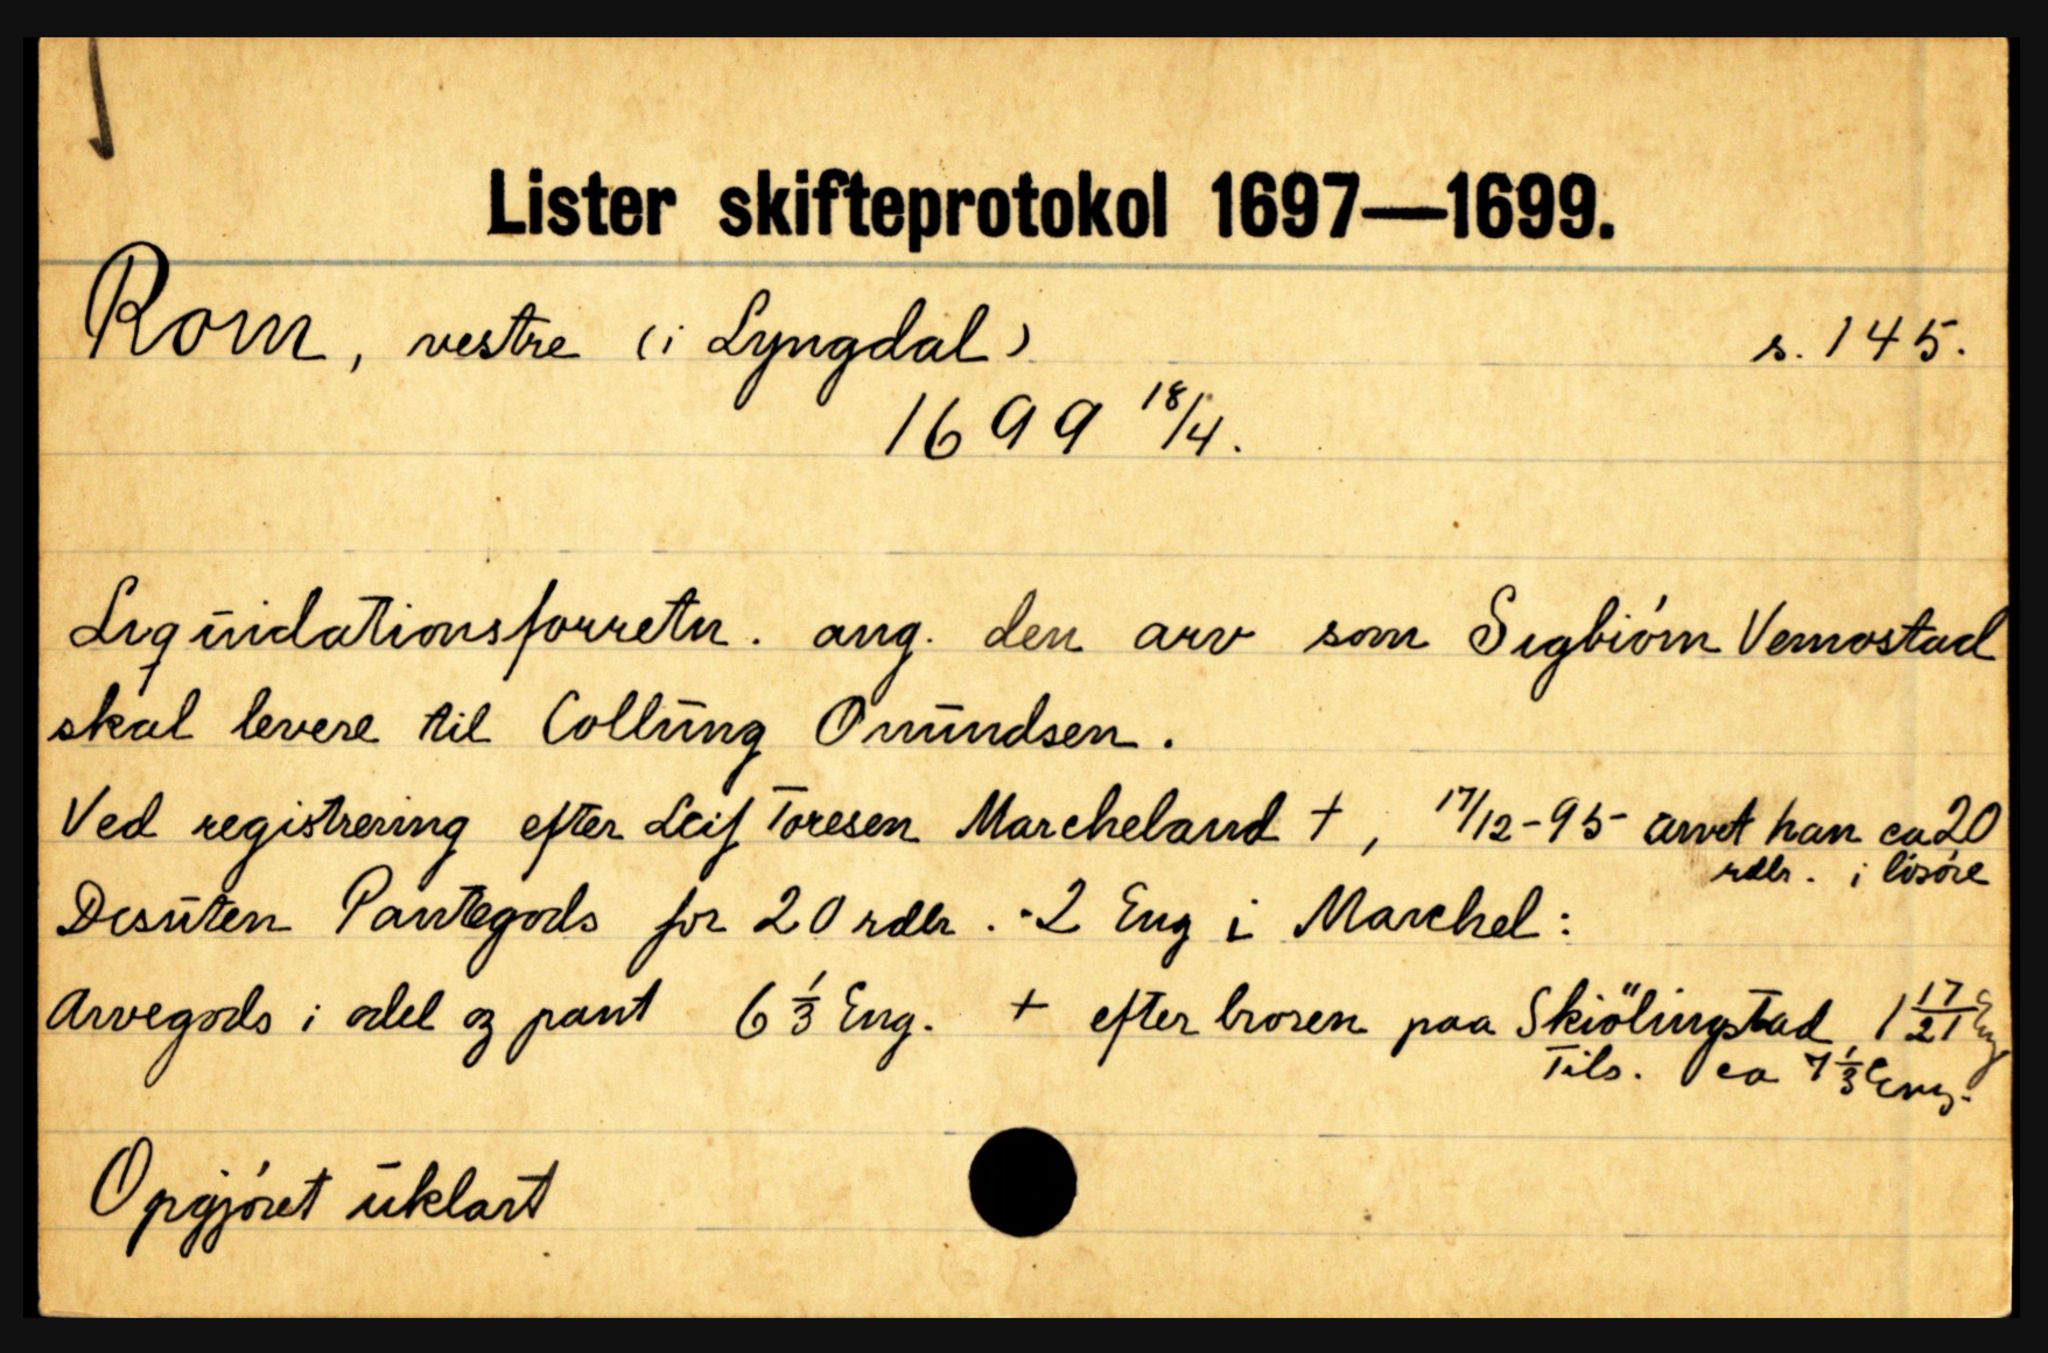 Lister skifteprotokol 1697—1699.
Rom, vestre (i Lyngdal) s. 145.
1699 18/4.
Liqūidationsforretn. ang. den arv som Sigbiórn Vemostad
skal levere til Collūng Onūndsen.
Ved registrering efter Leif Toresen Marcheland †, 17/12-95 arvet han ca 20
rdlr. i lösöre
Desūten Pantegods for 20 rdlr. - 2 Eng i Marchel:
Arvegods i odel og pant 6 1/3 Eng. + efter broren paa Skiölingstad 1 17/21 Eng
Tils. ca 7 1/3 Eng.
Opgjóret ūklart